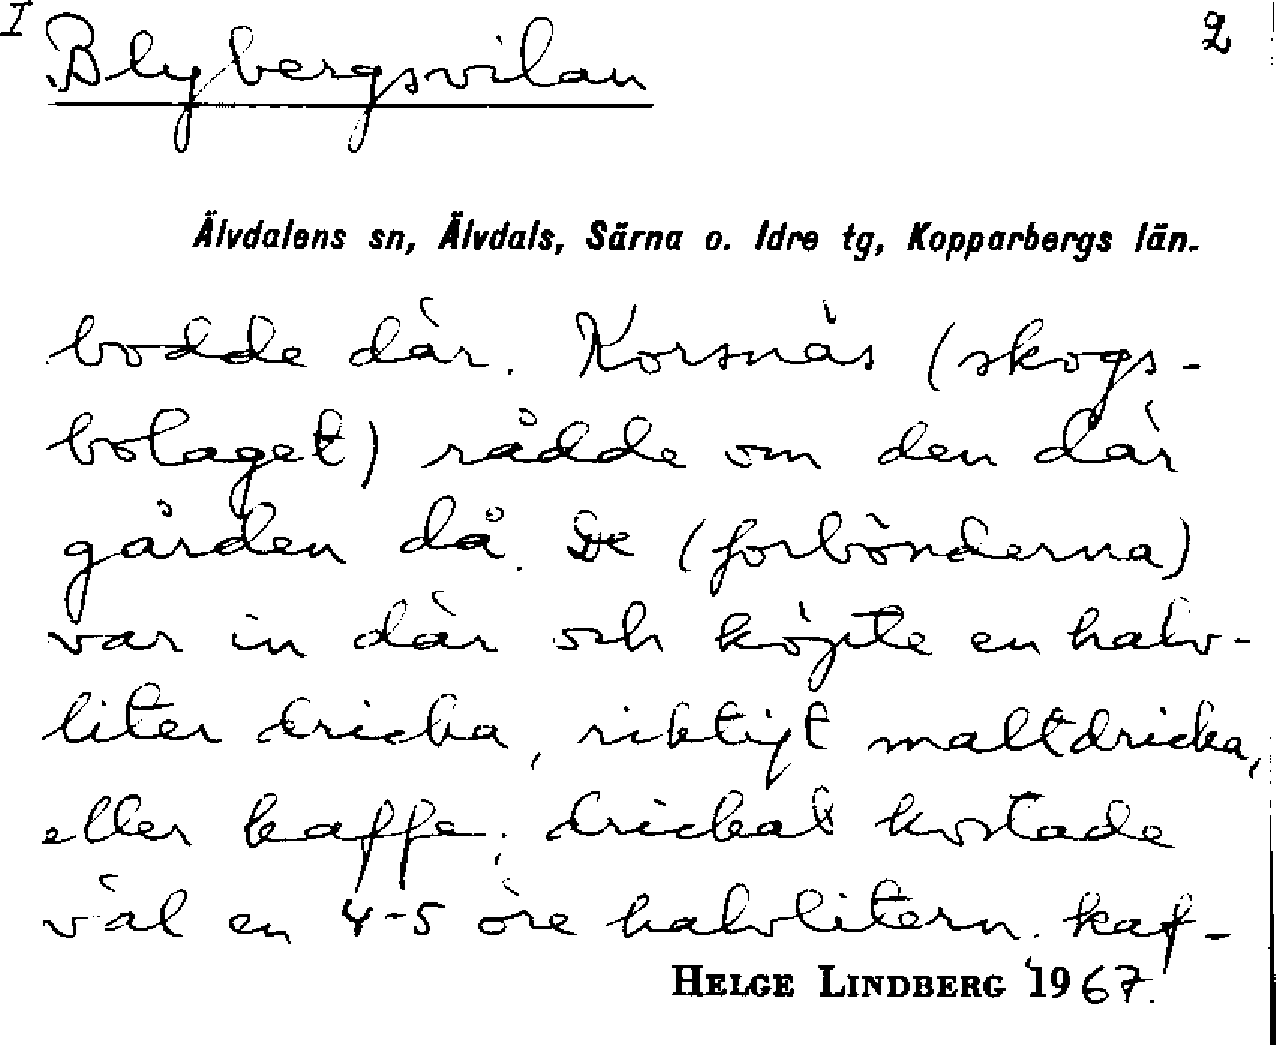 I Blybergsvilan 2
Älvdalens sn, Älvdals, Särna o. Idre tg, Kopparbergs län.
bodde där. Korsnäs (skogs-
bolaget) rådde om den där
gården då. De (forbönderna)
var in där och köpte en halv-
liter dricka, riktigt maltdricka,
eller kaffe; drickat kostade
väl en 4-5 öre halvlitern, kaf-
HELGE LINDBERG 1967.